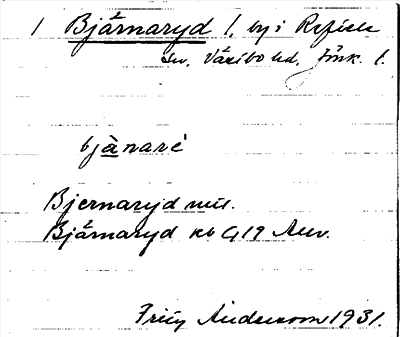 1 Bjärnaryd l. by i Reftele
sn. Västbo hd. Jönk. l.
bjà̱narè
Bjernaryd mtl.
Bjärnaryd kb G19 Anv.
Fritz Andersson 1931.